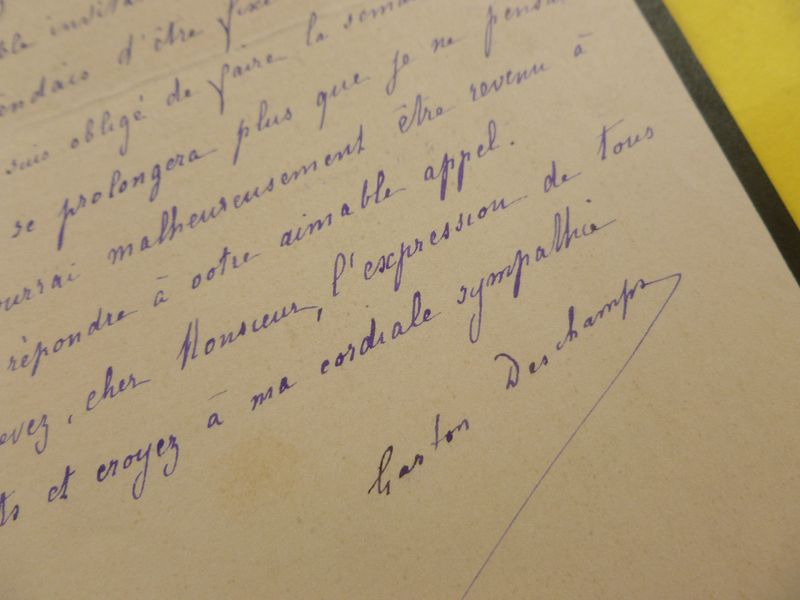 ble invita
endais d'être fixé
suis obligé de faire la sema
se prolongera plus que je ne pensai
ourrai malheureusement être revenu à
répondre à votre aimable appel.
evez, cher Monsieur, l'expression de tous
ts et croyez à ma cordiale sympathie
Gaston Deschamps